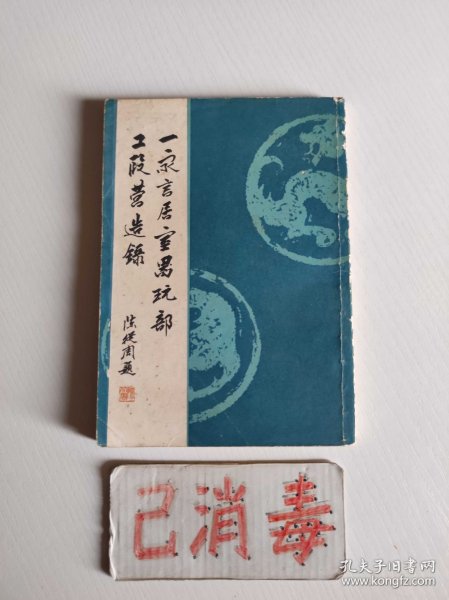 一家言居室器玩部
工段营造录
陈从周题
已消毒
孔夫子旧书网
www.kongfz.com